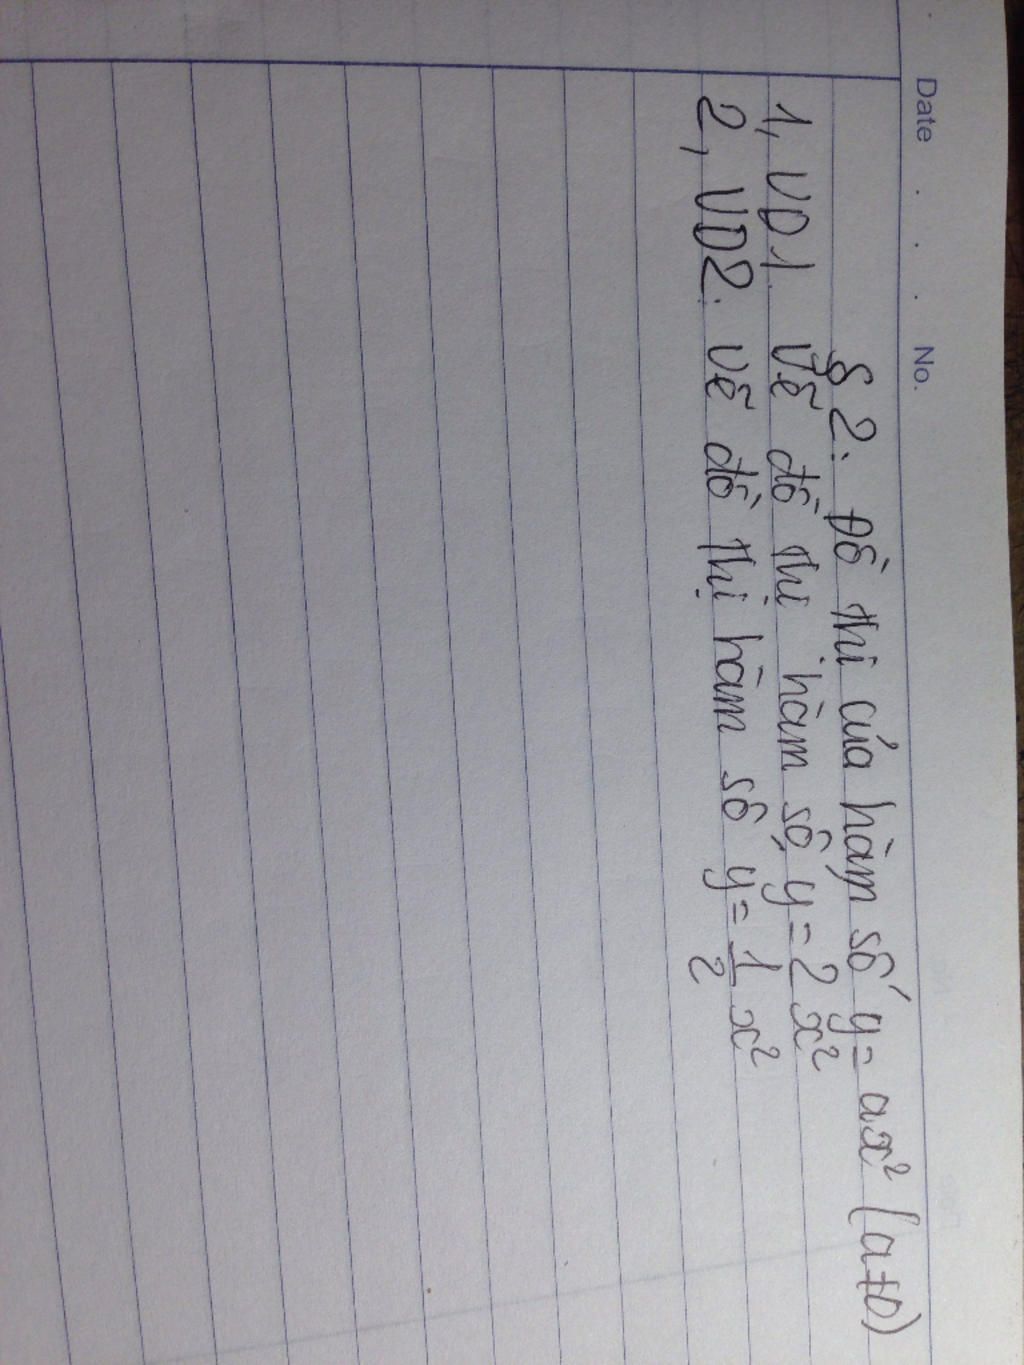 Date . . . No.
§ 2: Đồ thị của hàm số y = ax² (a≠0)
1, VD1. Vẽ đồ thị hàm số y = 2x²
2, VD2: vẽ đồ thị hàm số y = 1/2 x²